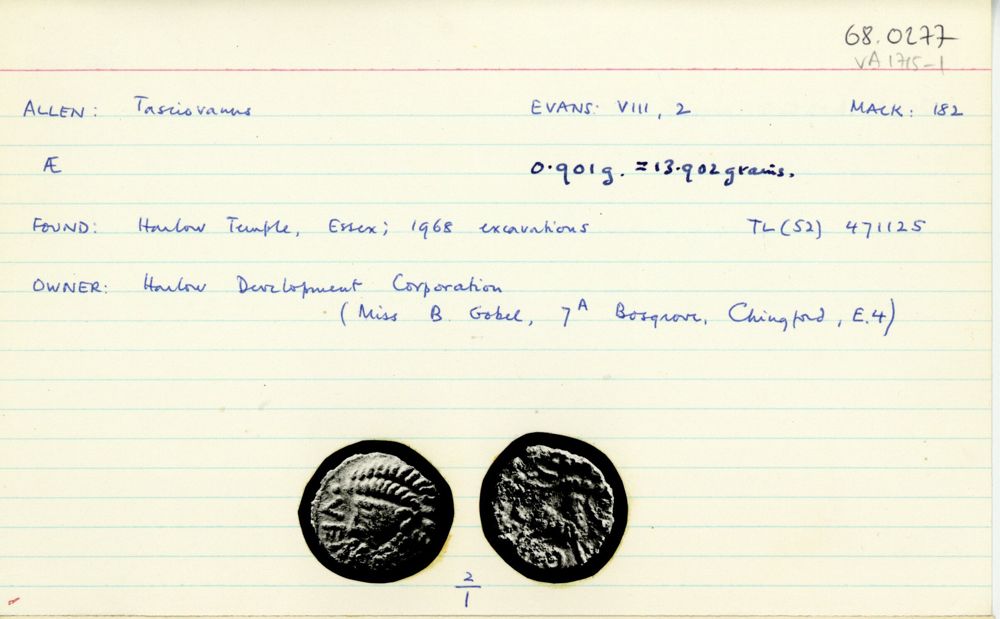 68.0277
VA 1715-1
ALLEN: Tasciovanus EVANS: VIII, 2 MACK: 182
Æ 0.901g. = 13.902 grains.
FOUND: Harlow Temple, Essex; 1968 excavations TL (52) 471125
OWNER: Harlow Development Corporation
(Miss B. Gobel, 7A Bosgrove, Chingford, E.4)
2
1